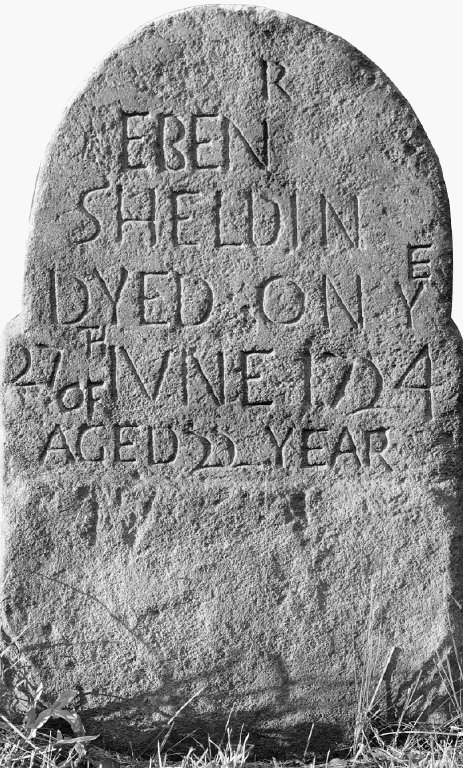 R
EBEN
SHELDIN
DYED ON Y E
27 H OF IVNE
AGED YEAR